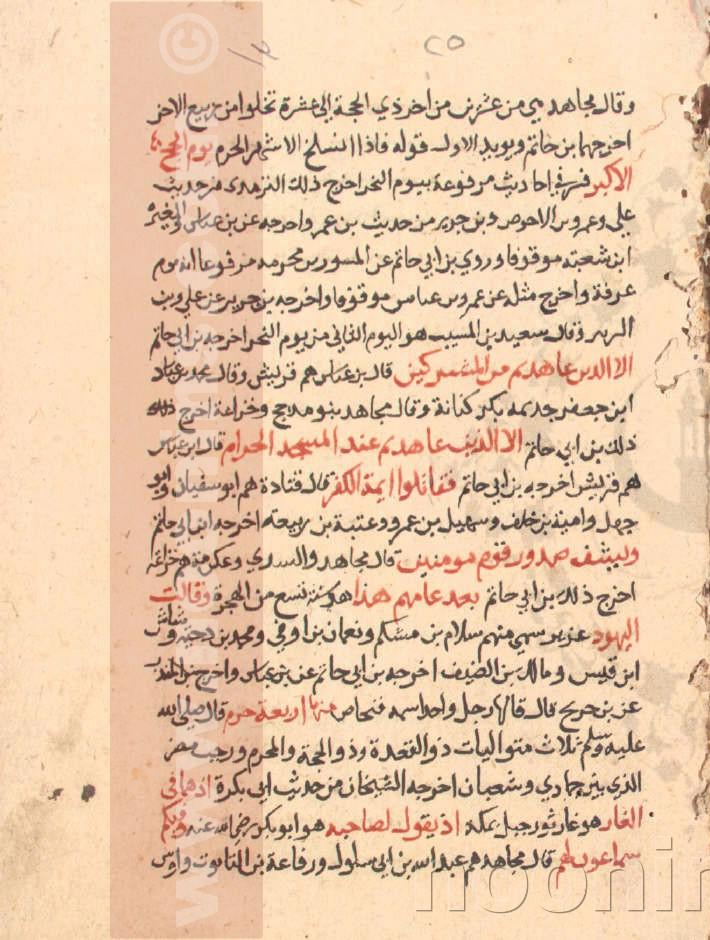 ٢٥ ١٢
وقال مجاهد هي من عشرين من اخر ذي الحجة الى عشرة تخلوا من ربيع الاخر
اخرجهما بن حاتم ويويد الاول قوله فاذا انسلخ الاشهر الحرم يوم الحج
الاكبر فسر في احاديث مرفوعة بيوم النحر اخرج ذلك الترمدي من حديث
علي وعمرو بن الاحوص وبن جرير من حديث بن عمر واخرجه عن بن عباس والمغيرة
ابن شعبة موقوفا وروي بن ابي حاتم عن المسور بن مخرمه مرفوعا انه يوم
عرفة واخرج مثله عن عمر وبن عباس موقوفا واخرجه بن جرير عن علي وبن
الزبير وقال سعيد بن المسيب هو اليوم الثاني من يوم النحر اخرجه بن ابي حاتم
الا الدين عاهدتم من المشركين قال بن عباس هم قريش وقال محمد بن عباد
ابن جعفر جديمه بكر كنانة وقال مجاهد بنو مدلج وخزاعة اخرج ذلك
ذلك بن ابي حاتم الا الذين عاهدتم عند المسجد الحرام قال ابن عباس
هم قريش اخرجه بن ابي حاتم فقاتلوا ايمة الكفر قال قتادة هم ابو سفيان وابو
جهل وامية بن خلف وسهيل بن عمرو وعتبة بن ربيعة اخرجه ابن ابي حاتم
وليشف صدور قوم مومنين قال مجاهد والسدي وعكرمة هم خزاعة
اخرج ذلك بن ابي حاتم بعد عامهم هذا هو سنة تسع من الهجرة وقالت
اليهود عزير سمي منهم سلام بن مشكم ونعمان بن اوفى ومحمد بن دحية وشاش
ابن قيس ومالك بن الضيف اخرجه بن ابي حاتم عن بن عباس واخرج بن المنذر
عن بن جريج قال قالها رجل واحد اسمه فنحاص منها اربعة حرم قال صلى الله
عليه وسلم ثلاث متواليات ذو القعدة وذو الحجة والمحرم ورجب مضر
الذي بين جمادي وشعبان اخرجه الشيخان من حديث ابي بكرة اذ هما في
الغار هو غار ثور جبل بمكة اذ يقول لصاحبه هو ابو بكر رضي الله عنه وفيكم
سماعون لهم قال مجاهد هم عبد الله بن ابي سلول ورفاعة بن التابوت واوس
noonin